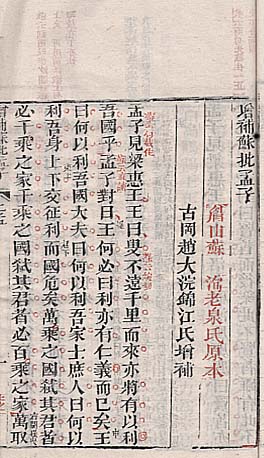 增補蘇批孟子
眉山蘇 洵老泉氏原本
古岡趙大浣錦江氏增補
孟子見梁惠王王曰叟不遠千里而來亦將有以利
吾國乎孟子對曰王何必曰利亦有仁義而已矣王
曰何以利吾國大夫曰何以利吾家士庶人曰何以
利吾身上下交征利而國危矣萬乘之國弒其君者
必千乘之家千乘之國弒其君者必百乘之家萬取
增補蘇批